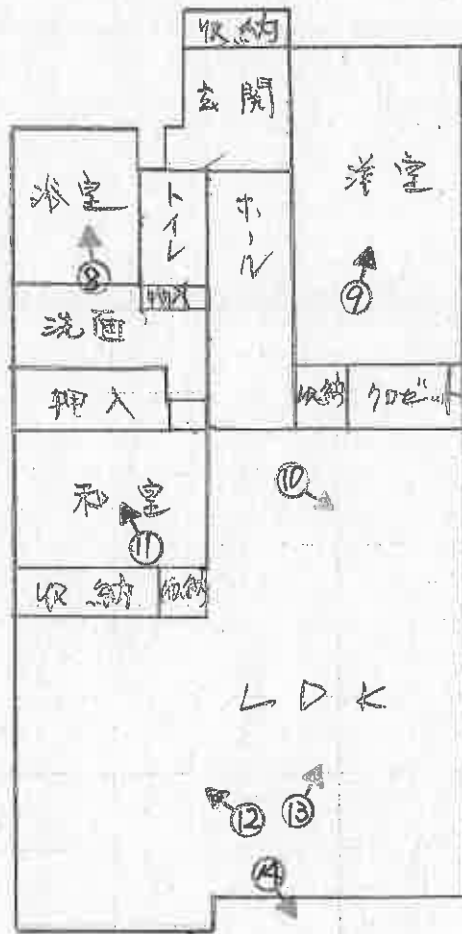 収納
玄関
浴室
トイレ
ホール
洋室
⑧
⑨
物入
洗面
押入
収納
クロゼット
和室
⑩
⑪
収納
収納
LDK
⑫
⑬
⑭